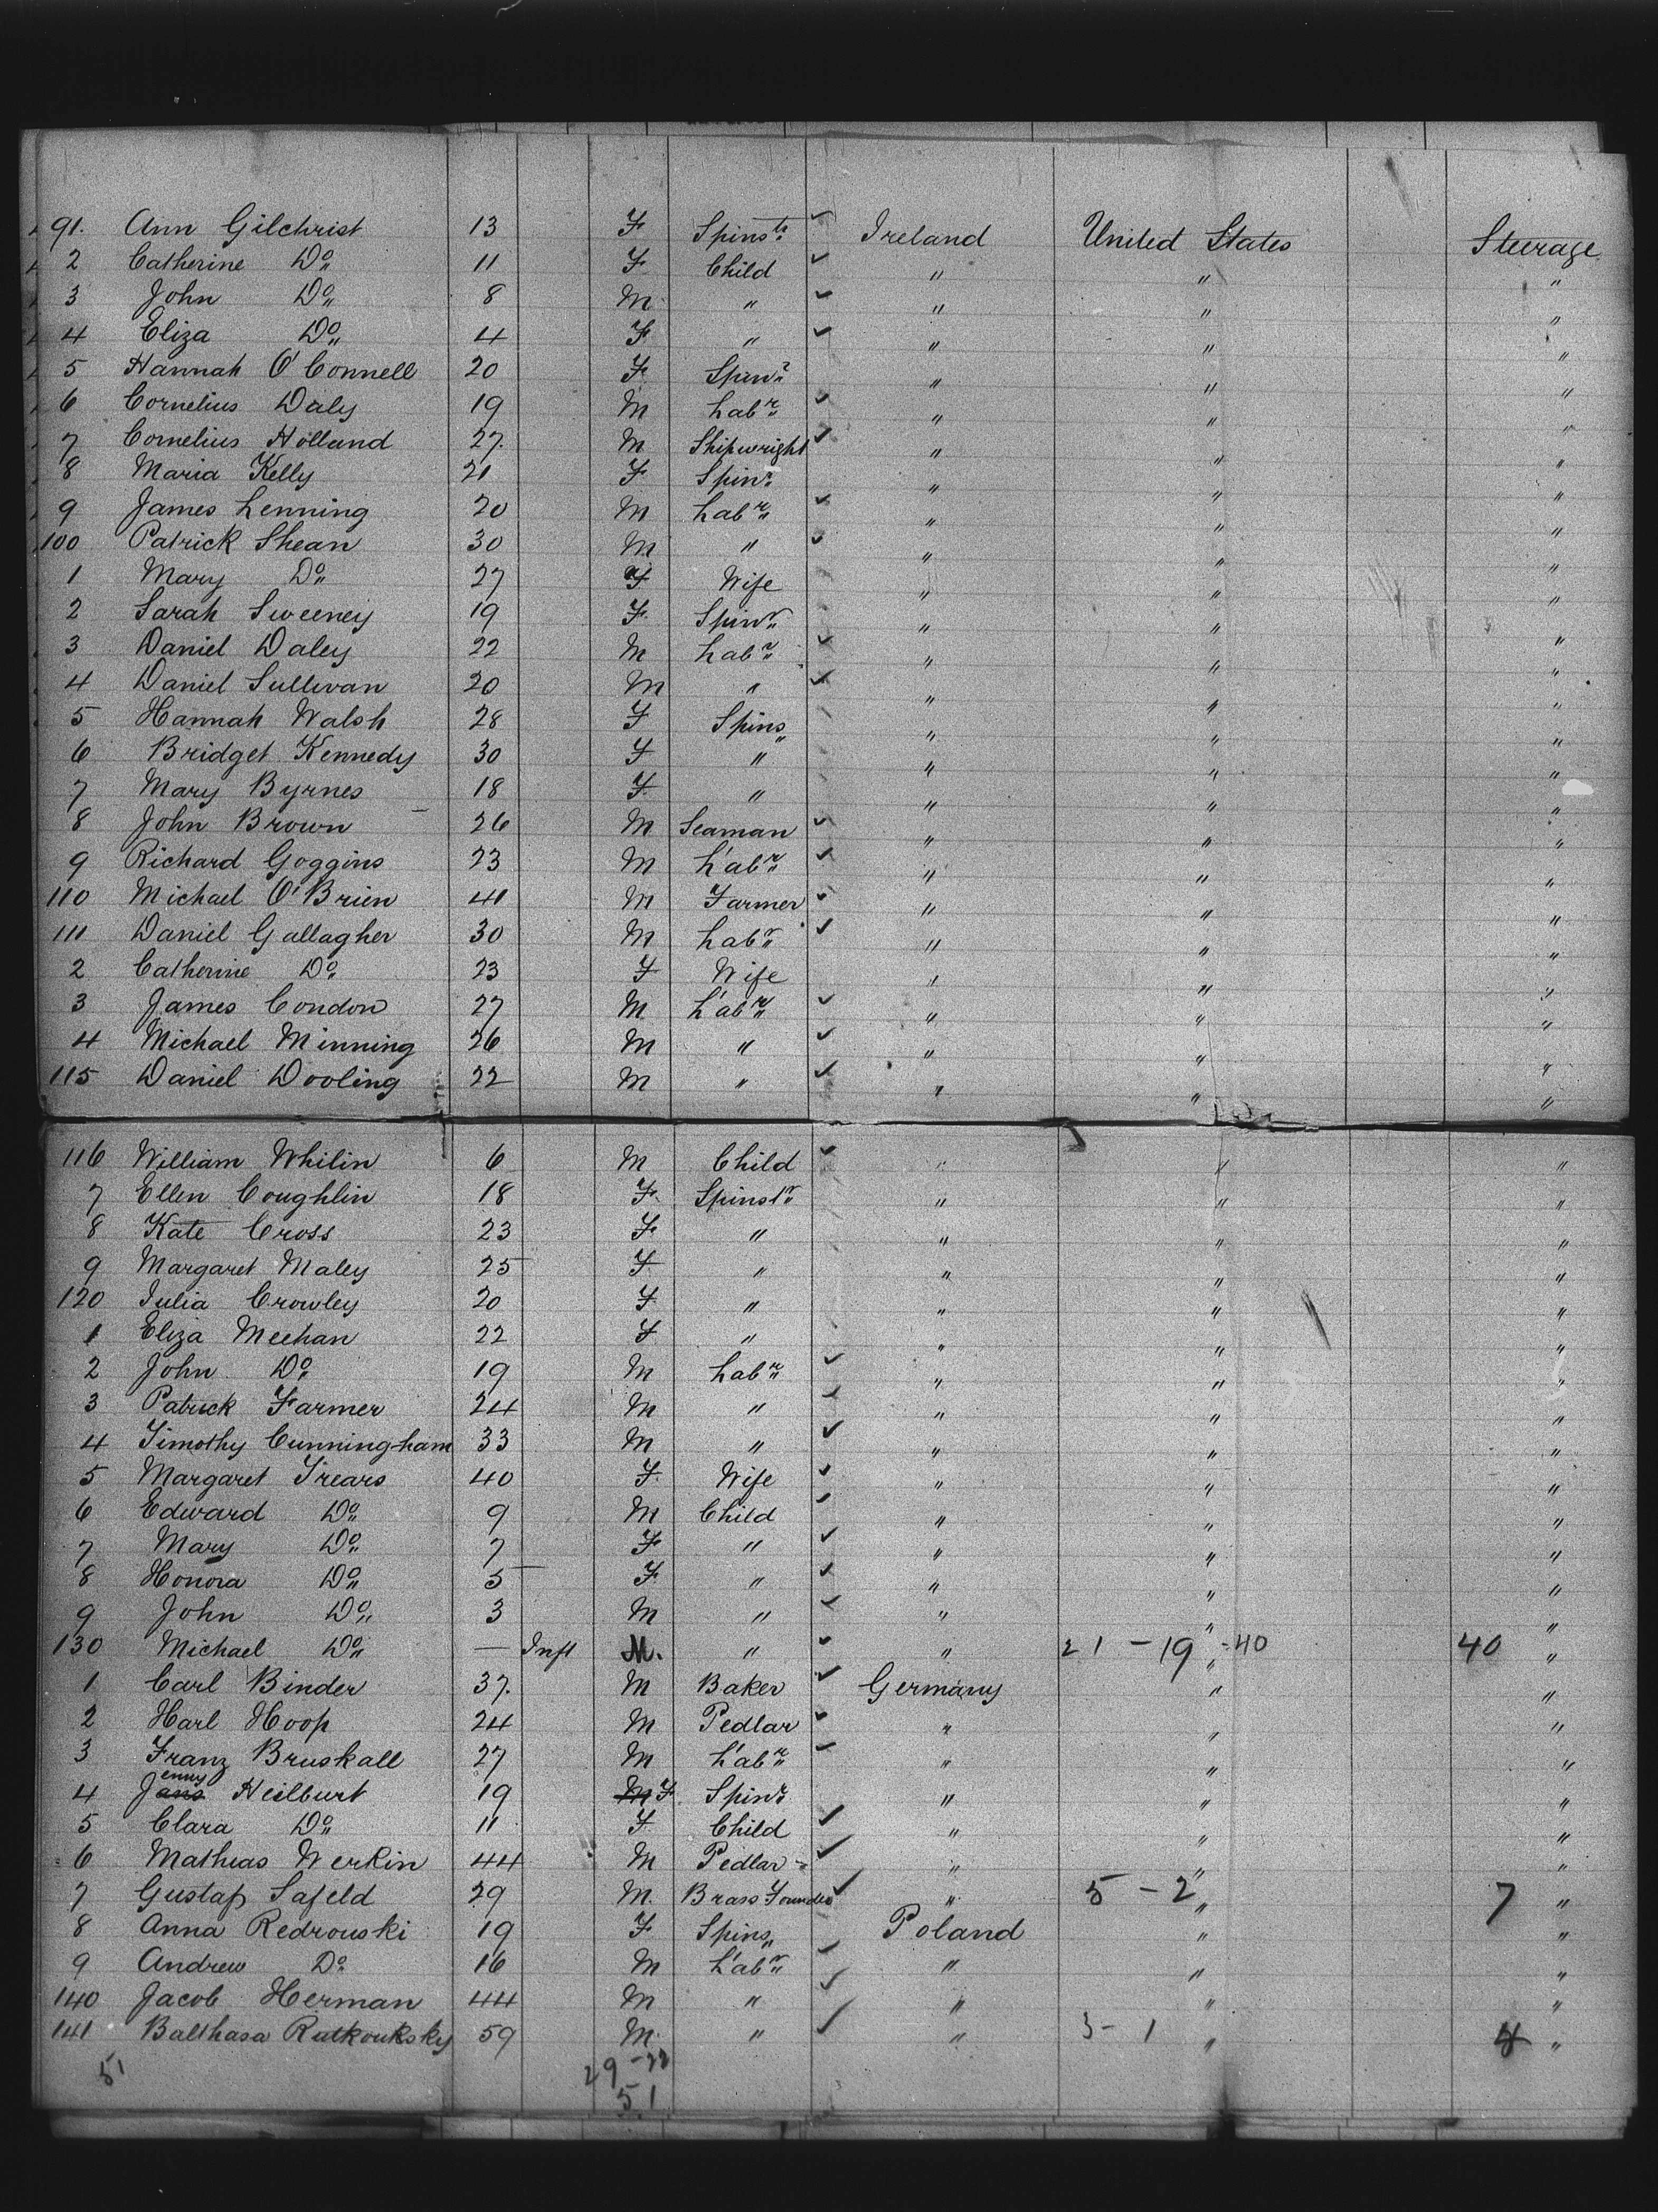 91. Ann Gilchrist 13 F Spinstr Ireland United States Steerage
2 Catherine Do 11 F Child " " "
3 John Do 8 M " " " "
4 Eliza Do 4 F " " " "
5 Hannah O'Connell 20 F Spinr " " "
6 Cornelius Daly 19 M Labr " " "
7 Cornelius Holland 27. M Shipwright " " "
8 Maria Kelly 21 F Spinr " " "
9 James Lenning 20 M Labr " " "
100 Patrick Shean 30 M " " " "
1 Mary Do 27 F Wife " " "
2 Sarah Sweeney 19 F Spinr " " "
3 Daniel Daley 22 M Labr " " "
4 Daniel Sullivan 20 M " " " "
5 Hannah Walsh 28 F Spins " " "
6 Bridget Kennedy 30 F " " " "
7 Mary Byrnes 18 F " " " "
8 John Brown 26 M Seaman " " "
9 Richard Goggins 23 M Labr " " "
110 Michael O'Brien 41 M Farmer " " "
111 Daniel Gallagher 30 M Labr " " "
2 Catherine Do 23 F Wife " " "
3 James Condon 27 M Labr " " "
4 Michael Minning 26 M " " " "
115 Daniel Dooling 22 M " " " "
116 William Whilin 6 M Child " " "
7 Ellen Coughlin 18 F Spinstr " " "
8 Kate Cross 23 F " " " "
9 Margaret Maley 25 F " " " "
120 Julia Crowley 20 F " " " "
1 Eliza Meehan 22 F " " " "
2 John Do 19 M Labr " " "
3 Patrick Farmer 24 M " " " "
4 Timothy Cunningham 33 M " " " "
5 Margaret Trears 40 F Wife " " "
6 Edward Do 9 M Child " " "
7 Mary Do 7 F " " " "
8 Honora Do 5 F " " " "
9 John Do 3 M " " " "
130 Michael Do — Inft M. " " 21 - 19 " - 40 40 "
1 Carl Binder 37. M Baker Germany " "
2 Harl Hoop 24 M Pedlar " " "
3 Franz Bruskall 27 M Labr " " "
4 Jenny Heilburt 19 F Spinr " " "
5 Clara Do 11 F Child " " "
6 Mathias Werkin 44 M Pedlar " " "
7 Gustaf Safeld 29 M. Brass Founder " 5 - 2 " 7 "
8 Anna Redrouski 19 F Spins Poland " "
9 Andrew Do 16 M Labr " " "
140 Jacob Herman 44 M " " " "
141 Balthasa Rutkouksky 59 M. " " 3 - 1 " 4 "
51 29 - 22
51